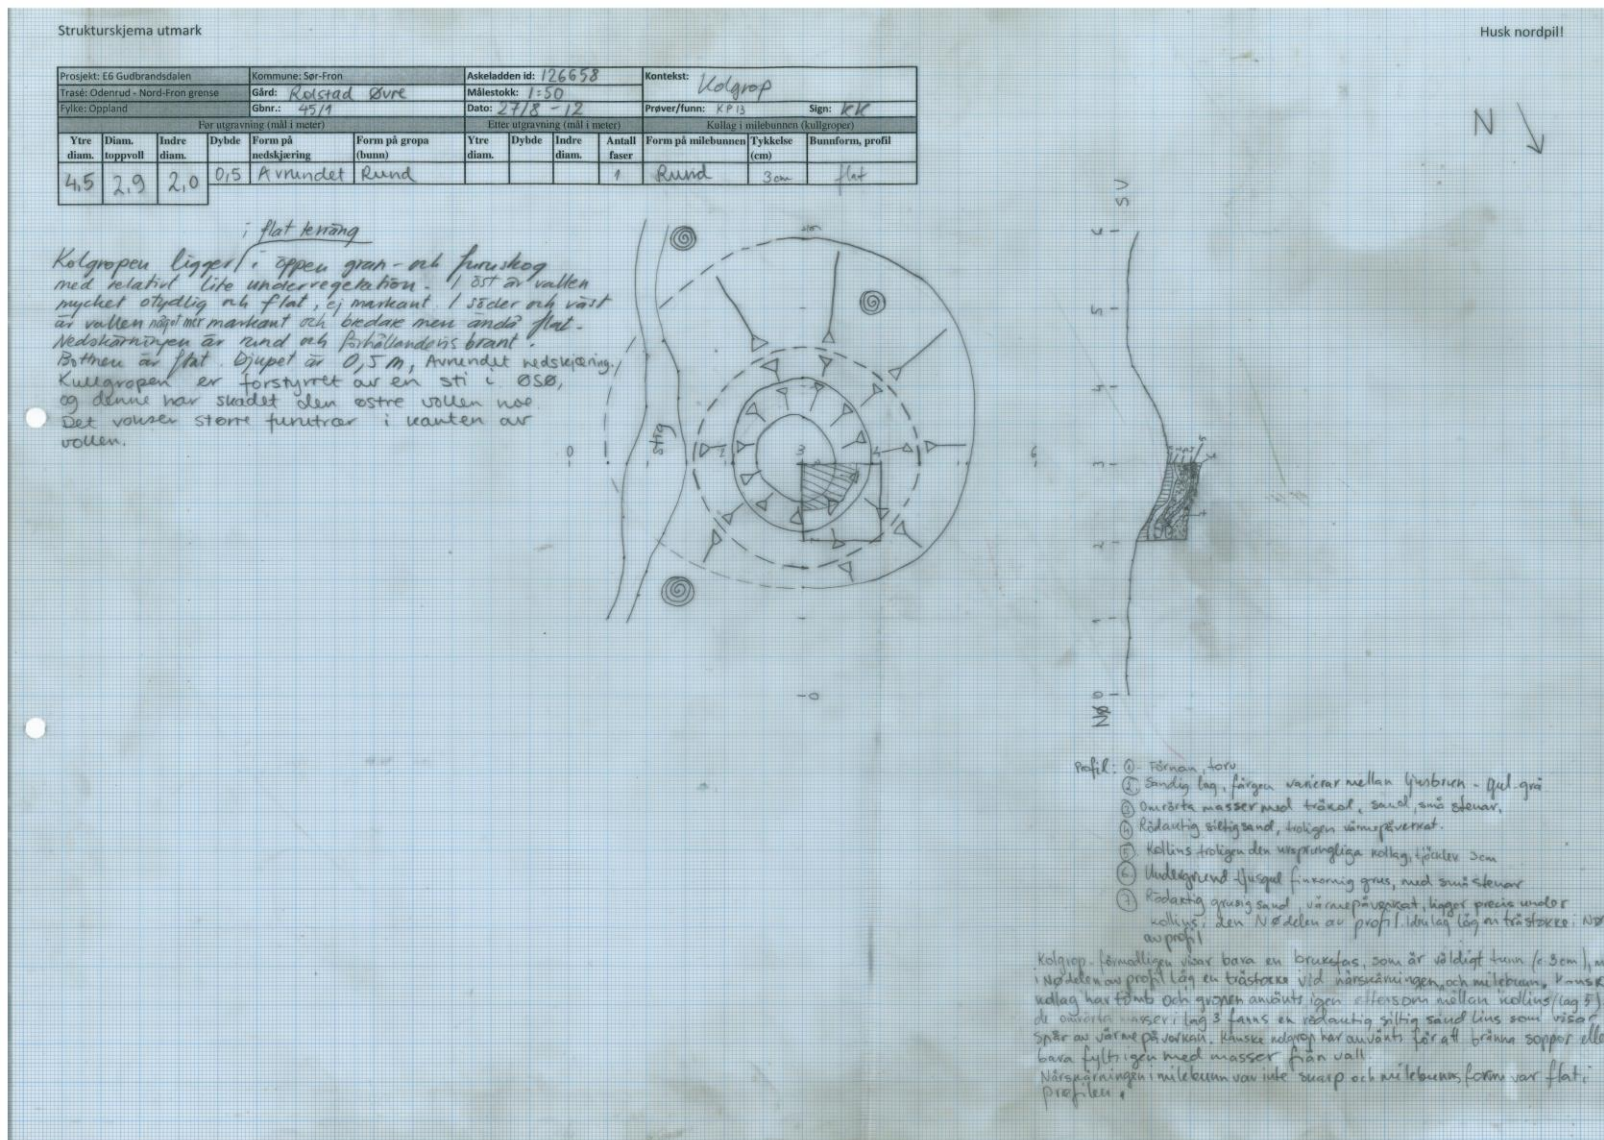 Strukturskjema utmark
Husk nordpil!
Prosjekt: E6 Gudbrandsdalen Kommune: Sør-Fron Askeladden id: 126658 Kontekst: Kolgrop
Trasé: Odenrud - Nord-Fron grense Gård: Rolstad Øvre Målestokk: 1:50
Fylke: Oppland Gbnr.: 45/1 Dato: 27/8 -12 Prøver/funn: KP13 Sign: KK
Før utgravning (mål i meter) Etter utgravning (mål i meter) Kullag i milebunnen (kullgroper)
Ytre diam. Diam. toppvoll Indre diam. Dybde Form på nedskjæring Form på gropa (bunn) Ytre diam. Dybde Indre diam. Antall faser Form på milebunnen Tykkelse (cm) Bunnform, profil
4,5 2,9 2,0 0,5 Avrundet Rund 1 Rund 3cm flat
N
i flat terräng
Kolgropen ligger i öppen gran- och furuskog
med relativt lite undervegetation. I öst är vallen
mycket otydlig och flat, ej markant. I söder och väst
är vallen något mer markant och bredare men ändå flat.
Nedskärningen är rund och förhållandevis brant.
Bottnen är flat. Djupet är 0,5 m, Avrundet nedskjæring.
Kullgropen er forstyrret av en sti i ØSØ,
og denne har skadet den østre vollen noe.
Det vokser større furutrær i kanten av
vollen.
stig
0 3 4 6
0
SV
6
5
4
3
2
1
0
NØ
Profil: ① Förnan, torv
② Sandig lag, färgen varierar mellan ljusbrun - gul-grå
③ Omrörta masser med träkol, sand, små stenar.
④ Rödaktig siltig sand, troligen värmepåverkat.
⑤ Kollins troligen den ursprungliga kollag, tjocklek 3cm
⑥ Undergrund - ljusgul finkornig grus, med små stenar
⑦ Rödaktig grusig sand, värmepåverkat, ligger precis under
kollins i den NØ delen av profil. I det lag låg en trästokke i NØ
av profil
Kolgrop förmodligen visar bara en bruksfas, som är väldigt tunn (c 3cm),
i NØ delen av profil låg en trästocke vid närskärningen och milebunn. Kanske
kollag har tömts och gropen använts igen eftersom mellan kollins (lag 5)
de omrörta masser i lag 3 fanns en rödaktig siltig sand lins som visar
spår av värmepåverkan. Kanske kolgrop har använts för att bränna soppor eller
bara fyllts igen med masser från vall.
Närskärningen i milebunn var inte skarp och milebunns form var flat i
profilen.